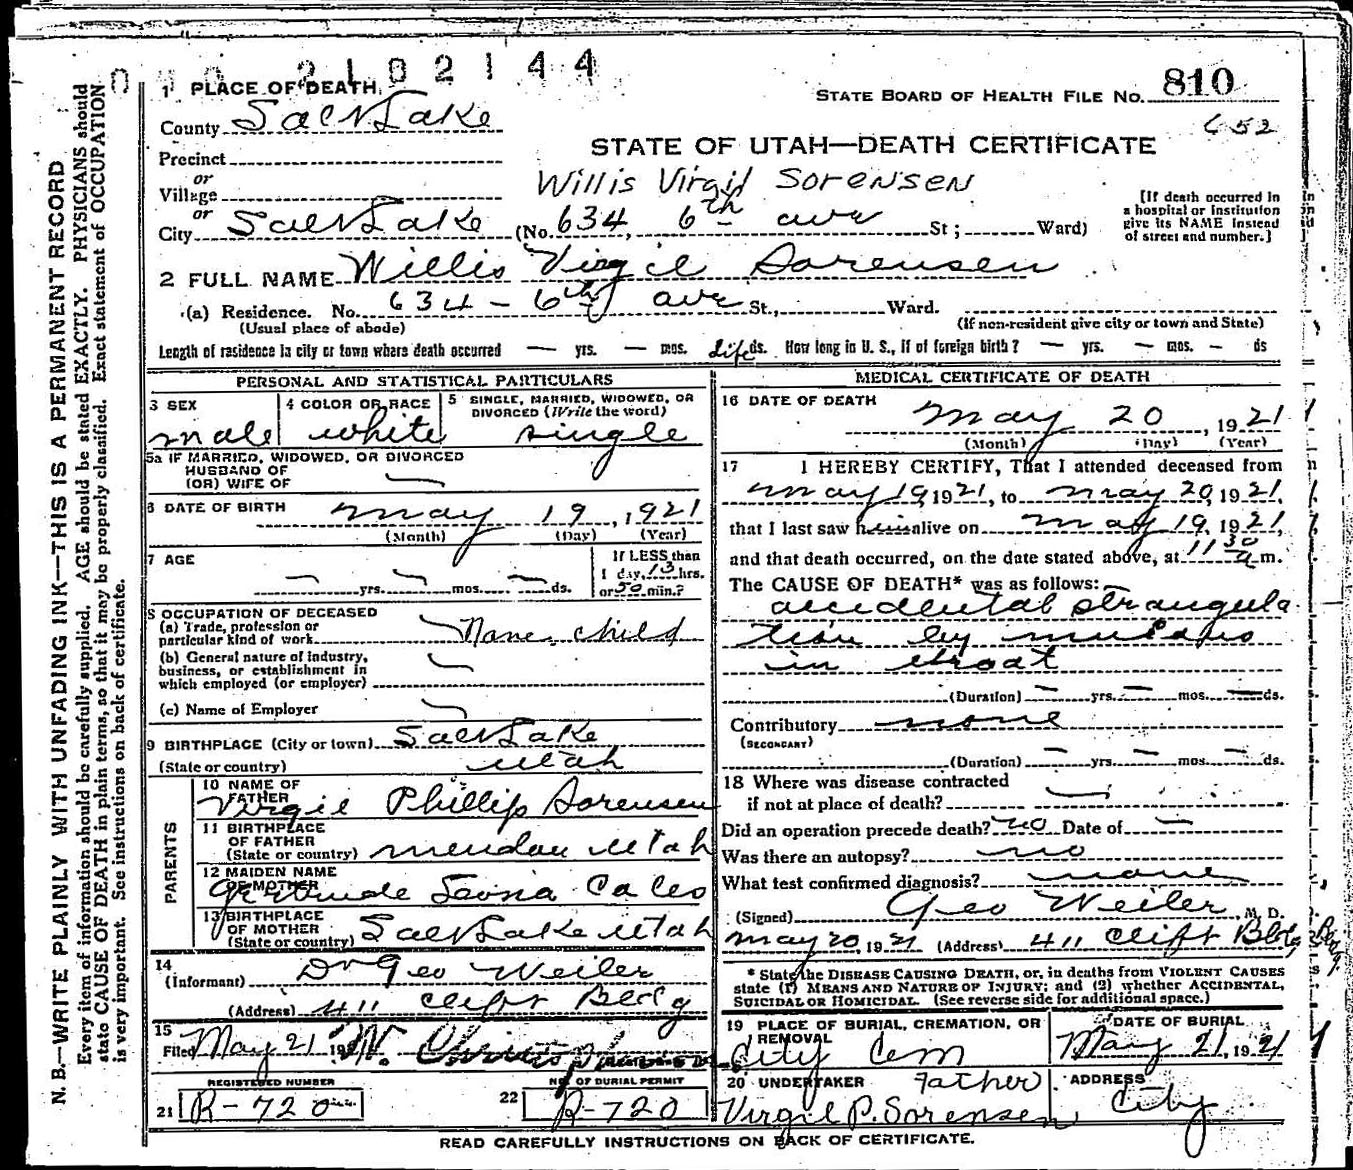 2102144
1 PLACE OF DEATH
STATE BOARD OF HEALTH FILE NO. 810
652
County Salt Lake
STATE OF UTAH—DEATH CERTIFICATE
Precinct
or
Village
Willis Virgil Sorensen
[If death occurred in a hospital or institution give its NAME instead of street and number.]
or
City Salt Lake (No. 634, 6th ave St; Ward)
2 FULL NAME Willis Virgil Sorensen
(a) Residence. No. 634 - 6th ave St., Ward.
(Usual place of abode) (If non-resident give city or town and State)
Length of residence in city or town where death occurred — yrs. — mos. Life ds. How long in U. S., if of foreign birth? — yrs. — mos. — ds
PERSONAL AND STATISTICAL PARTICULARS
3 SEX male
4 COLOR OR RACE white
5 SINGLE, MARRIED, WIDOWED, OR DIVORCED (Write the word) single
5a IF MARRIED, WIDOWED, OR DIVORCED
HUSBAND OF
(OR) WIFE OF —
6 DATE OF BIRTH may 19, 1921
(Month) (Day) (Year)
7 AGE — yrs. — mos. — ds.
If LESS than 1 day, 13 hrs. or 50 min.?
8 OCCUPATION OF DECEASED
(a) Trade, profession or particular kind of work None. child
(b) General nature of industry, business, or establishment in which employed (or employer) —
(c) Name of Employer —
9 BIRTHPLACE (City or town) Salt Lake
(State or country) Utah
PARENTS
10 NAME OF FATHER Virgil Phillip Sorensen
11 BIRTHPLACE OF FATHER (State or country) mendon Utah
12 MAIDEN NAME OF MOTHER Gertrude
13 BIRTHPLACE OF MOTHER (State or country) Salt Lake Utah
14 (Informant) Dr Geo Weiler
(Address) 411 Clift Bldg
15 Filed May 21 19
REGISTERED NUMBER
21 R-720
NO. OF BURIAL PERMIT
22 R-720
MEDICAL CERTIFICATE OF DEATH
16 DATE OF DEATH may 20, 1921
(Month) (Day) (Year)
17 I HEREBY CERTIFY, That I attended deceased from
may 19, 1921, to may 20, 1921,
that I last saw him alive on may 19, 1921,
and that death occurred, on the date stated above, at 11 30 a m.
The CAUSE OF DEATH* was as follows:
accidental strangula
tion by mucous
in throat
(Duration) — yrs. — mos. — ds.
Contributory none
(SECONDARY)
(Duration) — yrs. — mos. — ds.
18 Where was disease contracted
if not at place of death? —
Did an operation precede death? no Date of —
Was there an autopsy? no
What test confirmed diagnosis? none
(Signed) Geo Weiler, M. D.
may 20, 1921 (Address) 411 Clift Bldg
* State the DISEASE CAUSING DEATH, or, in deaths from VIOLENT CAUSES
state (1) MEANS AND NATURE OF INJURY; and (2) whether ACCIDENTAL,
SUICIDAL OR HOMICIDAL. (See reverse side for additional space.)
19 PLACE OF BURIAL, CREMATION, OR REMOVAL City Cem
DATE OF BURIAL May 21, 1921
20 UNDERTAKER Father
Virgil P. Sorensen
ADDRESS City
READ CAREFULLY INSTRUCTIONS ON BACK OF CERTIFICATE.
N. B.—WRITE PLAINLY WITH UNFADING INK—THIS IS A PERMANENT RECORD
Every item of information should be carefully supplied. AGE should be stated EXACTLY. PHYSICIANS should
state CAUSE OF DEATH in plain terms, so that it may be properly classified. Exact statement of OCCUPATION
is very important. See instructions on back of certificate.